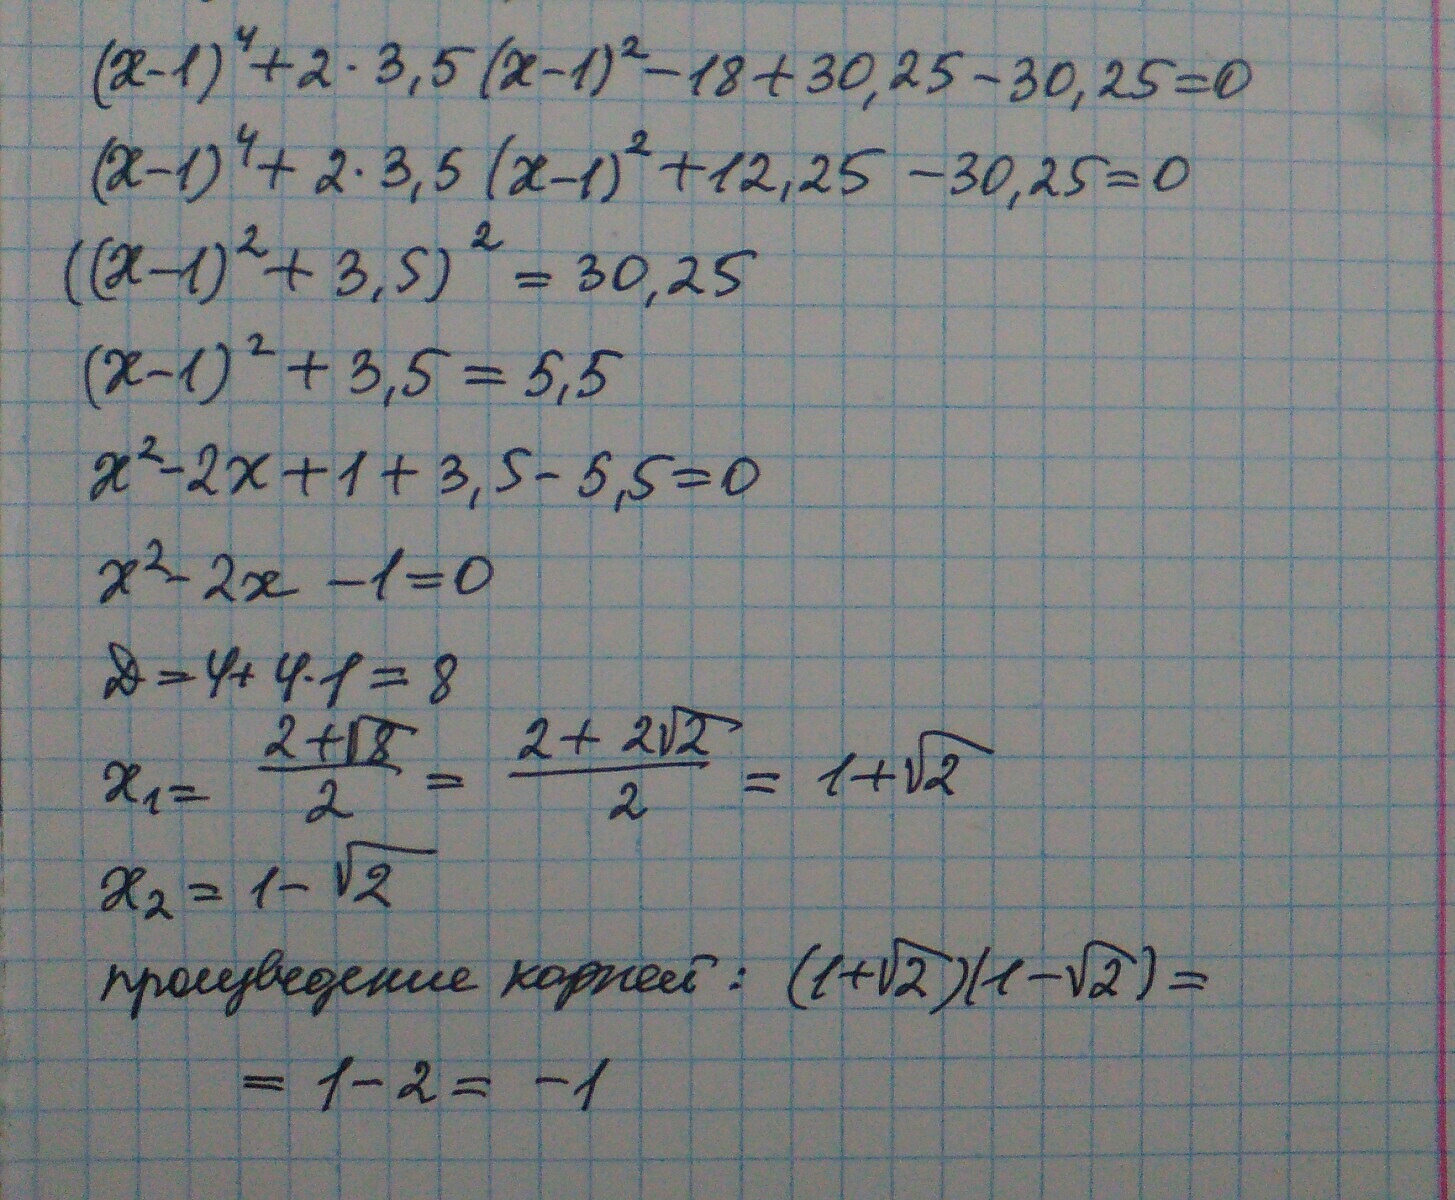 (x-1)⁴+2·3,5(x-1)²-18+30,25-30,25=0
(x-1)⁴+2·3,5(x-1)²+12,25-30,25=0
((x-1)²+3,5)²=30,25
(x-1)²+3,5=5,5
x²-2x+1+3,5-5,5=0
x²-2x-1=0
D=4+4·1=8
x₁=(2+√8)/2=(2+2√2)/2=1+√2
x₂=1-√2
произведение корней: (1+√2)(1-√2)=
=1-2=-1